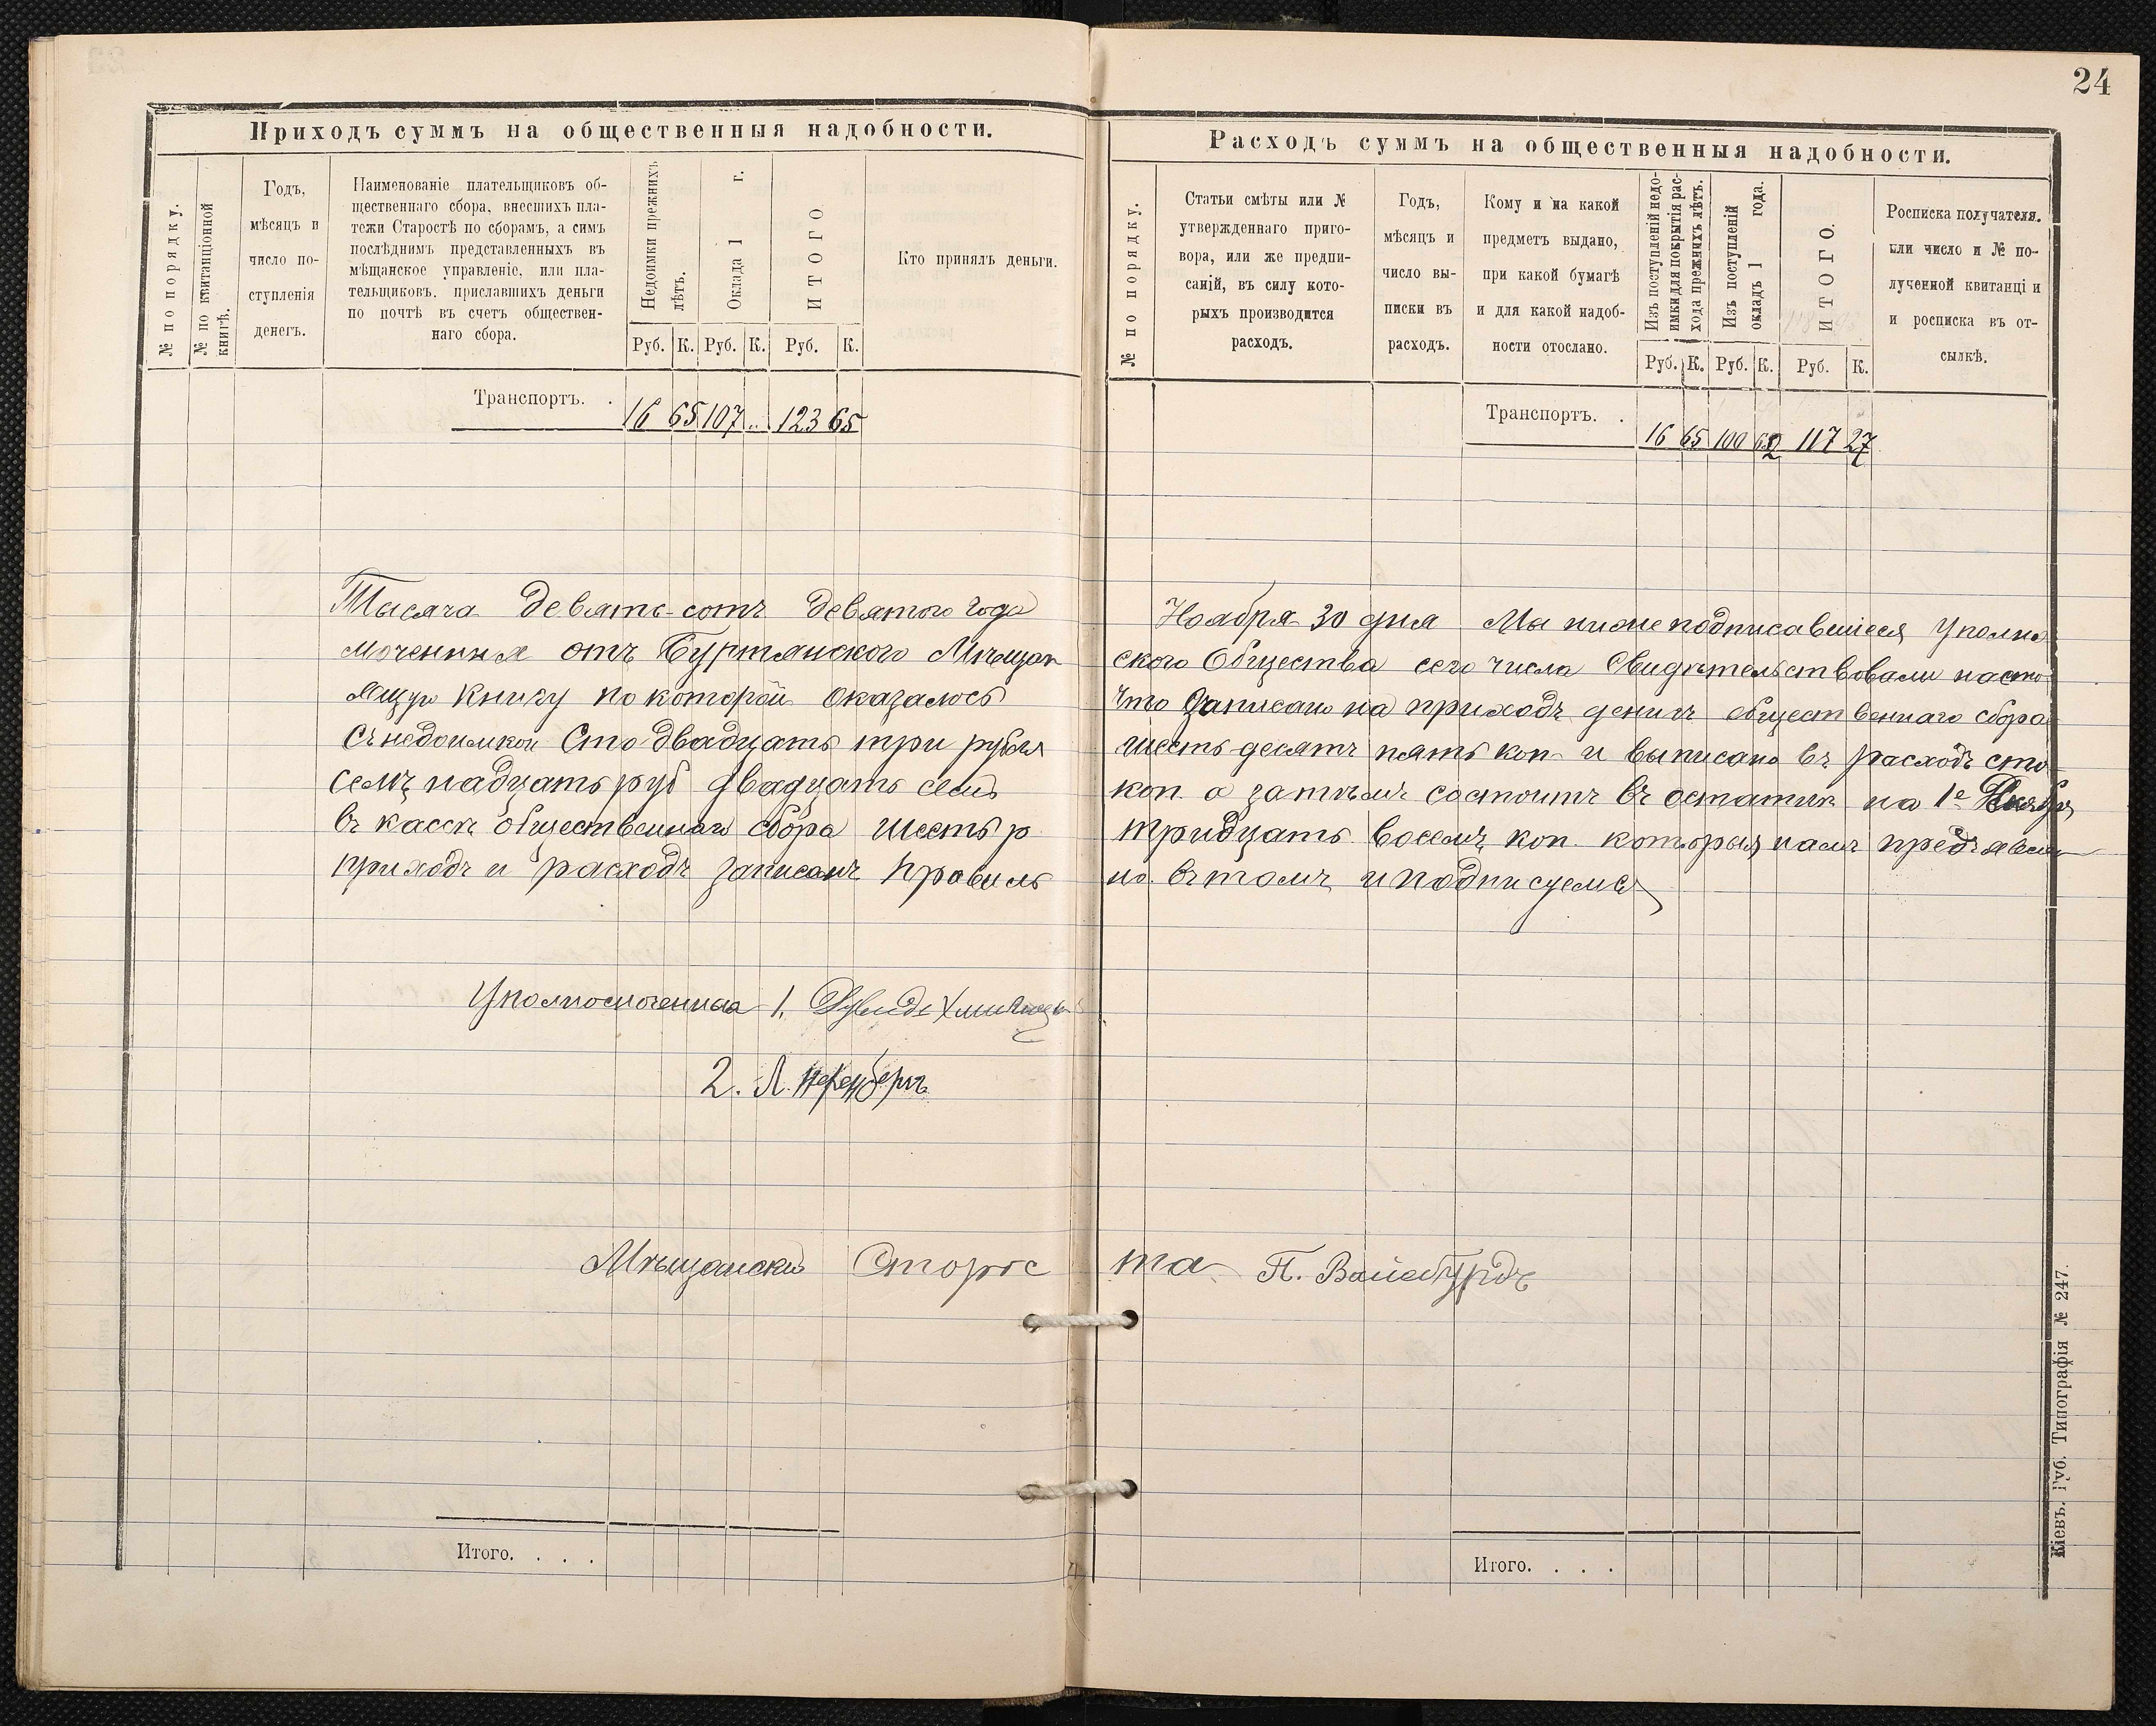 24
Приходъ суммъ на общественныя надобности.
№ по порядку.
№ по квитанціонной книгѣ.
Годъ,
мѣсяцъ и
число по-
ступленія
денегъ.
Наименованіе плательщиковъ об-
щественнаго сбора, внесшихъ пла-
тежи Старостѣ по сборамъ, а симъ
послѣднимъ представленныхъ въ
мѣщанское управленіе, или пла-
тельщиковъ, приславшихъ деньги
по почтѣ въ счетъ обществен-
наго сбора.
Недоимки прежнихъ
лѣтъ.
Оклада 1 г.
ИТОГО
Кто принялъ деньги.
Руб. К. Руб. К. Руб. К.
Транспортъ. . 16 65 107 .. 123 65
Тысяча девять-сотъ девятого года
моченныя отъ Буртянского Мѣщан
ящую книгу по которой оказалось
Съ недоимкой Сто двадцать три рубля
семъ надцать руб двадцать семь
въ кассѣ общественнаго сбора шесть р
приходъ и расходъ записанъ правиль
Уполномоченные 1.
2. Л.
Мѣщанскій Старос
Итого. . . .
Расходъ суммъ на общественныя надобности.
№ по порядку.
Статьи смѣты или №
утвержденнаго приго-
вора, или же предпи-
саній, въ силу кото-
рыхъ производится
расходъ.
Годъ,
мѣсяцъ и
число вы-
писки въ
расходъ.
Кому и на какой
предметъ выдано,
при какой бумагѣ
и для какой надоб-
ности отослано.
Изъ поступленій недо-
имки для покрытія рас-
хода прежнихъ лѣтъ.
Изъ поступленій
окладъ 1 года.
ИТОГО.
Росписка получателя.
или число и № по-
лученной квитанці и
и росписка въ от-
сылкѣ.
Руб. К. Руб. К. Руб. К.
Транспортъ. . 16 65 100 62 117 27
Ноября 30 дня Мы нижеподписавшіеся Уполно
ского Общества сего числа Свидѣтельствовали насто
что записано на приходъ денигъ общественнаго сбора
шесть-десятъ пять коп и выписано въ расходъ сто
коп. а затѣмъ состоитъ въ остаткѣ на 1е Декабря
тридцать восемъ коп. которыя намъ предъявлен
но. Въ томъ и подписуемся
та П. Вайсбурдъ
Итого. . . .
Кіевъ. Губ. Типографія № 247.